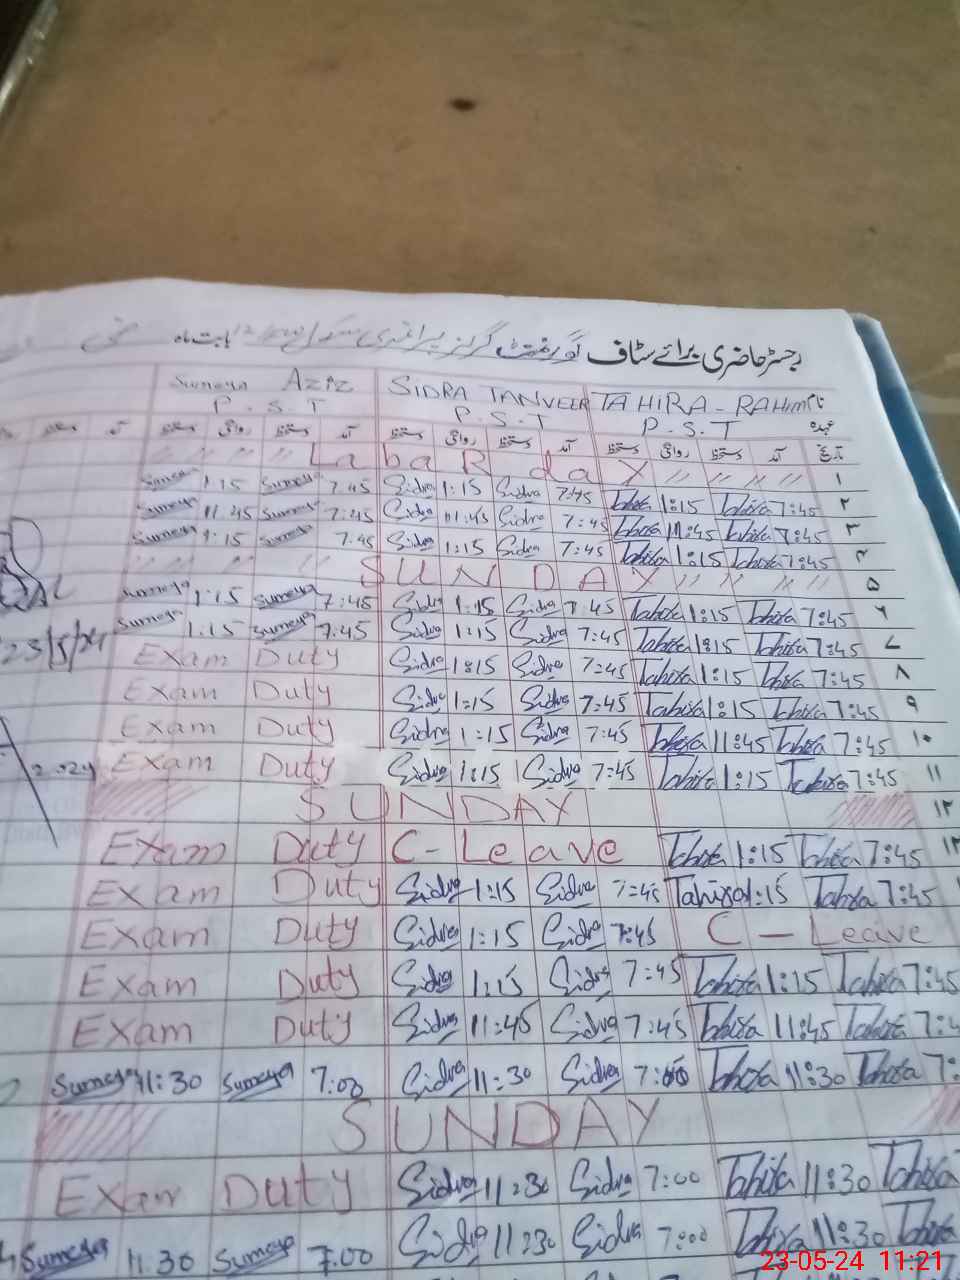 رجسٹر حاضری برائے سٹاف گورنمنٹ گرلز پرائمری سکول بابت ماہ
Sumeya Aziz SIDRA TANVEER TAHIRA - RAHIM نام
P.S.T P.S.T P.S.T عہدہ
آمد دستخط روانگی دستخط آمد دستخط روانگی دستخط آمد دستخط روانگی دستخط آمد تاریخ
" " " " Labar day " " " " ۱
Sumeya 1:15 Sumeya 7:45 Sidra 1:15 Sidra 7:45 Tahira 1:15 Tahira 7:45 ۲
Sumeya 11:45 Sumeya 7:45 Sidra 11:45 Sidra 7:45 Tahira 11:45 Tahira 7:45 ۳
Sumeya 1:15 Sumeya 7:45 Sidra 1:15 Sidra 7:45 Tahira 1:15 Tahira 7:45 ۴
" " " " SUNDAY " " " " ۵
Sumeya 1:15 Sumeya 7:45 Sidra 1:15 Sidra 7:45 Tahira 1:15 Tahira 7:45 ۶
Sumeya 1:15 Sumeya 7:45 Sidra 1:15 Sidra 7:45 Tahira 1:15 Tahira 7:45 ۷
23/5/24
Exam Duty Sidra 1:15 Sidra 7:45 Tahira 1:15 Tahira 7:45 ۸
Exam Duty Sidra 1:15 Sidra 7:45 Tahira 1:15 Tahira 7:45 ۹
Exam Duty Sidra 1:15 Sidra 7:45 Tahira 11:45 Tahira 7:45 ۱۰
Exam Duty Sidra 1:15 Sidra 7:45 Tahira 1:15 Tahira 7:45 ۱۱
SUNDAY ۱۲
Exam Duty C-Leave Tahira 1:15 Tahira 7:45 ۱۳
Exam Duty Sidra 1:15 Sidra 7:45 Tahira 1:15 Tahira 7:45
Exam Duty Sidra 1:15 Sidra 7:45 C-Leave
Exam Duty Sidra 1:15 Sidra 7:45 Tahira 1:15 Tahira 7:45
Exam Duty Sidra 11:45 Sidra 7:45 Tahira 11:45 Tahira 7:4
Sumeya 11:30 Sumeya 7:00 Sidra 11:30 Sidra 7:00 Tahira 11:30 Tahira 7:
SUNDAY
Exam Duty Sidra 11:30 Sidra 7:00 Tahira 11:30 Tahira
Sumeya 11:30 Sumeya 7:00 Sidra 11:30 Sidra 7:00 Tahira 11:30 Tahira
23-05-24 11:21